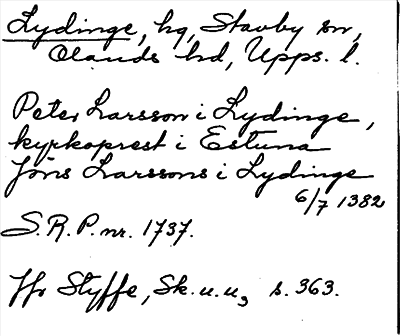 Lydinge, hg, Stavby sn,
Olands hd, Upps. l.
Peter Larsson i Lydinge,
kyrkoprest i Estuna
Jöns Larssons i Lydinge
6/7 1382
S.R.P. nr. 1737.
Jfr Styffe, Sk.u.u, s. 363.